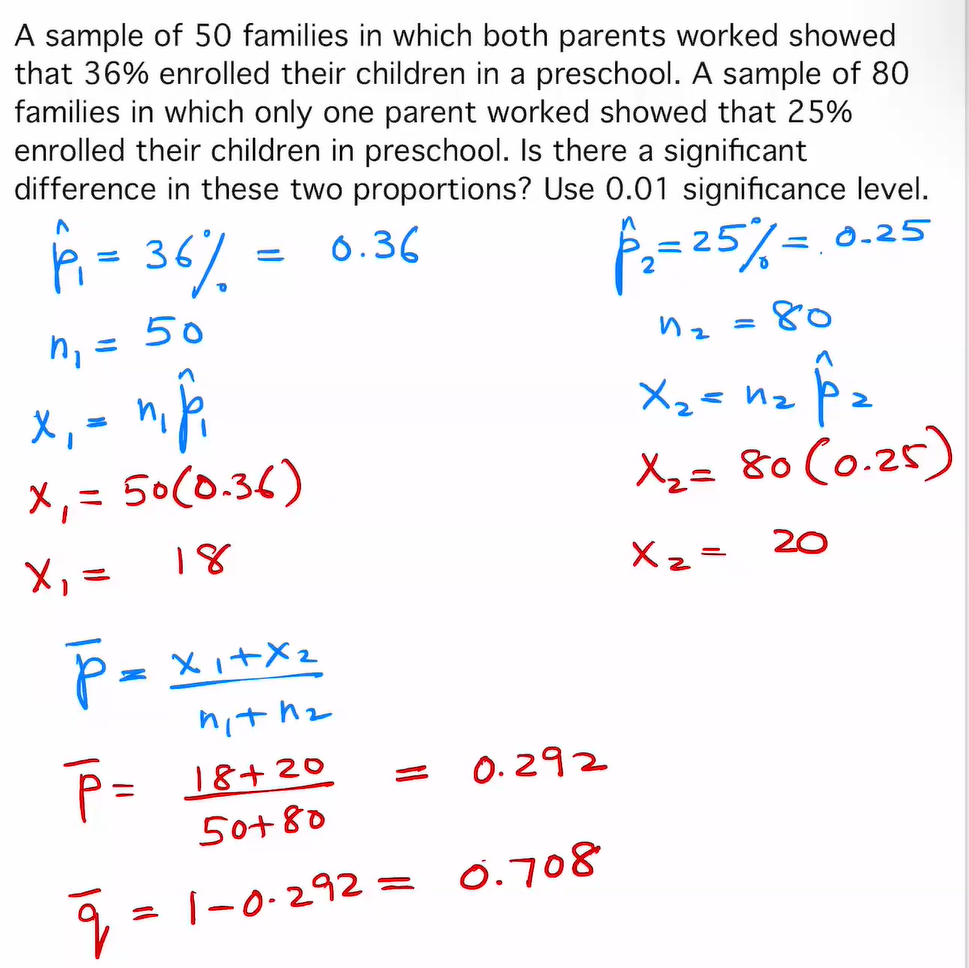 A sample of 50 families in which both parents worked showed
that 36% enrolled their children in a preschool. A sample of 80
families in which only one parent worked showed that 25%
enrolled their children in preschool. Is there a significant
difference in these two proportions? Use 0.01 significance level.
p̂₁ = 36% = 0.36
n₁ = 50
x₁ = n₁p̂₁
x₁ = 50(0.36)
x₁ = 18
p̂₂ = 25% = 0.25
n₂ = 80
x₂ = n₂ p̂₂
x₂ = 80(0.25)
x₂ = 20
p̅ = x₁+x₂ / n₁+n₂
p̅ = 18+20 / 50+80 = 0.292
q̅ = 1-0.292 = 0.708